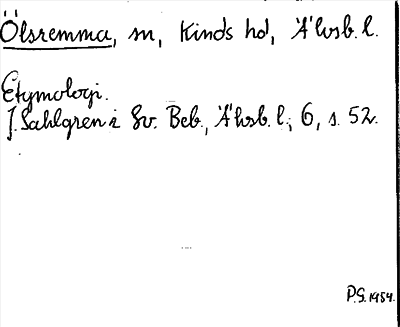 Ölsremma, sn, Kinds hd, Älvsb. l.
Etymologi.
J. Sahlgren i Sv. Beb., Älvsb. l., 6, s. 52.
P.G. 1984.